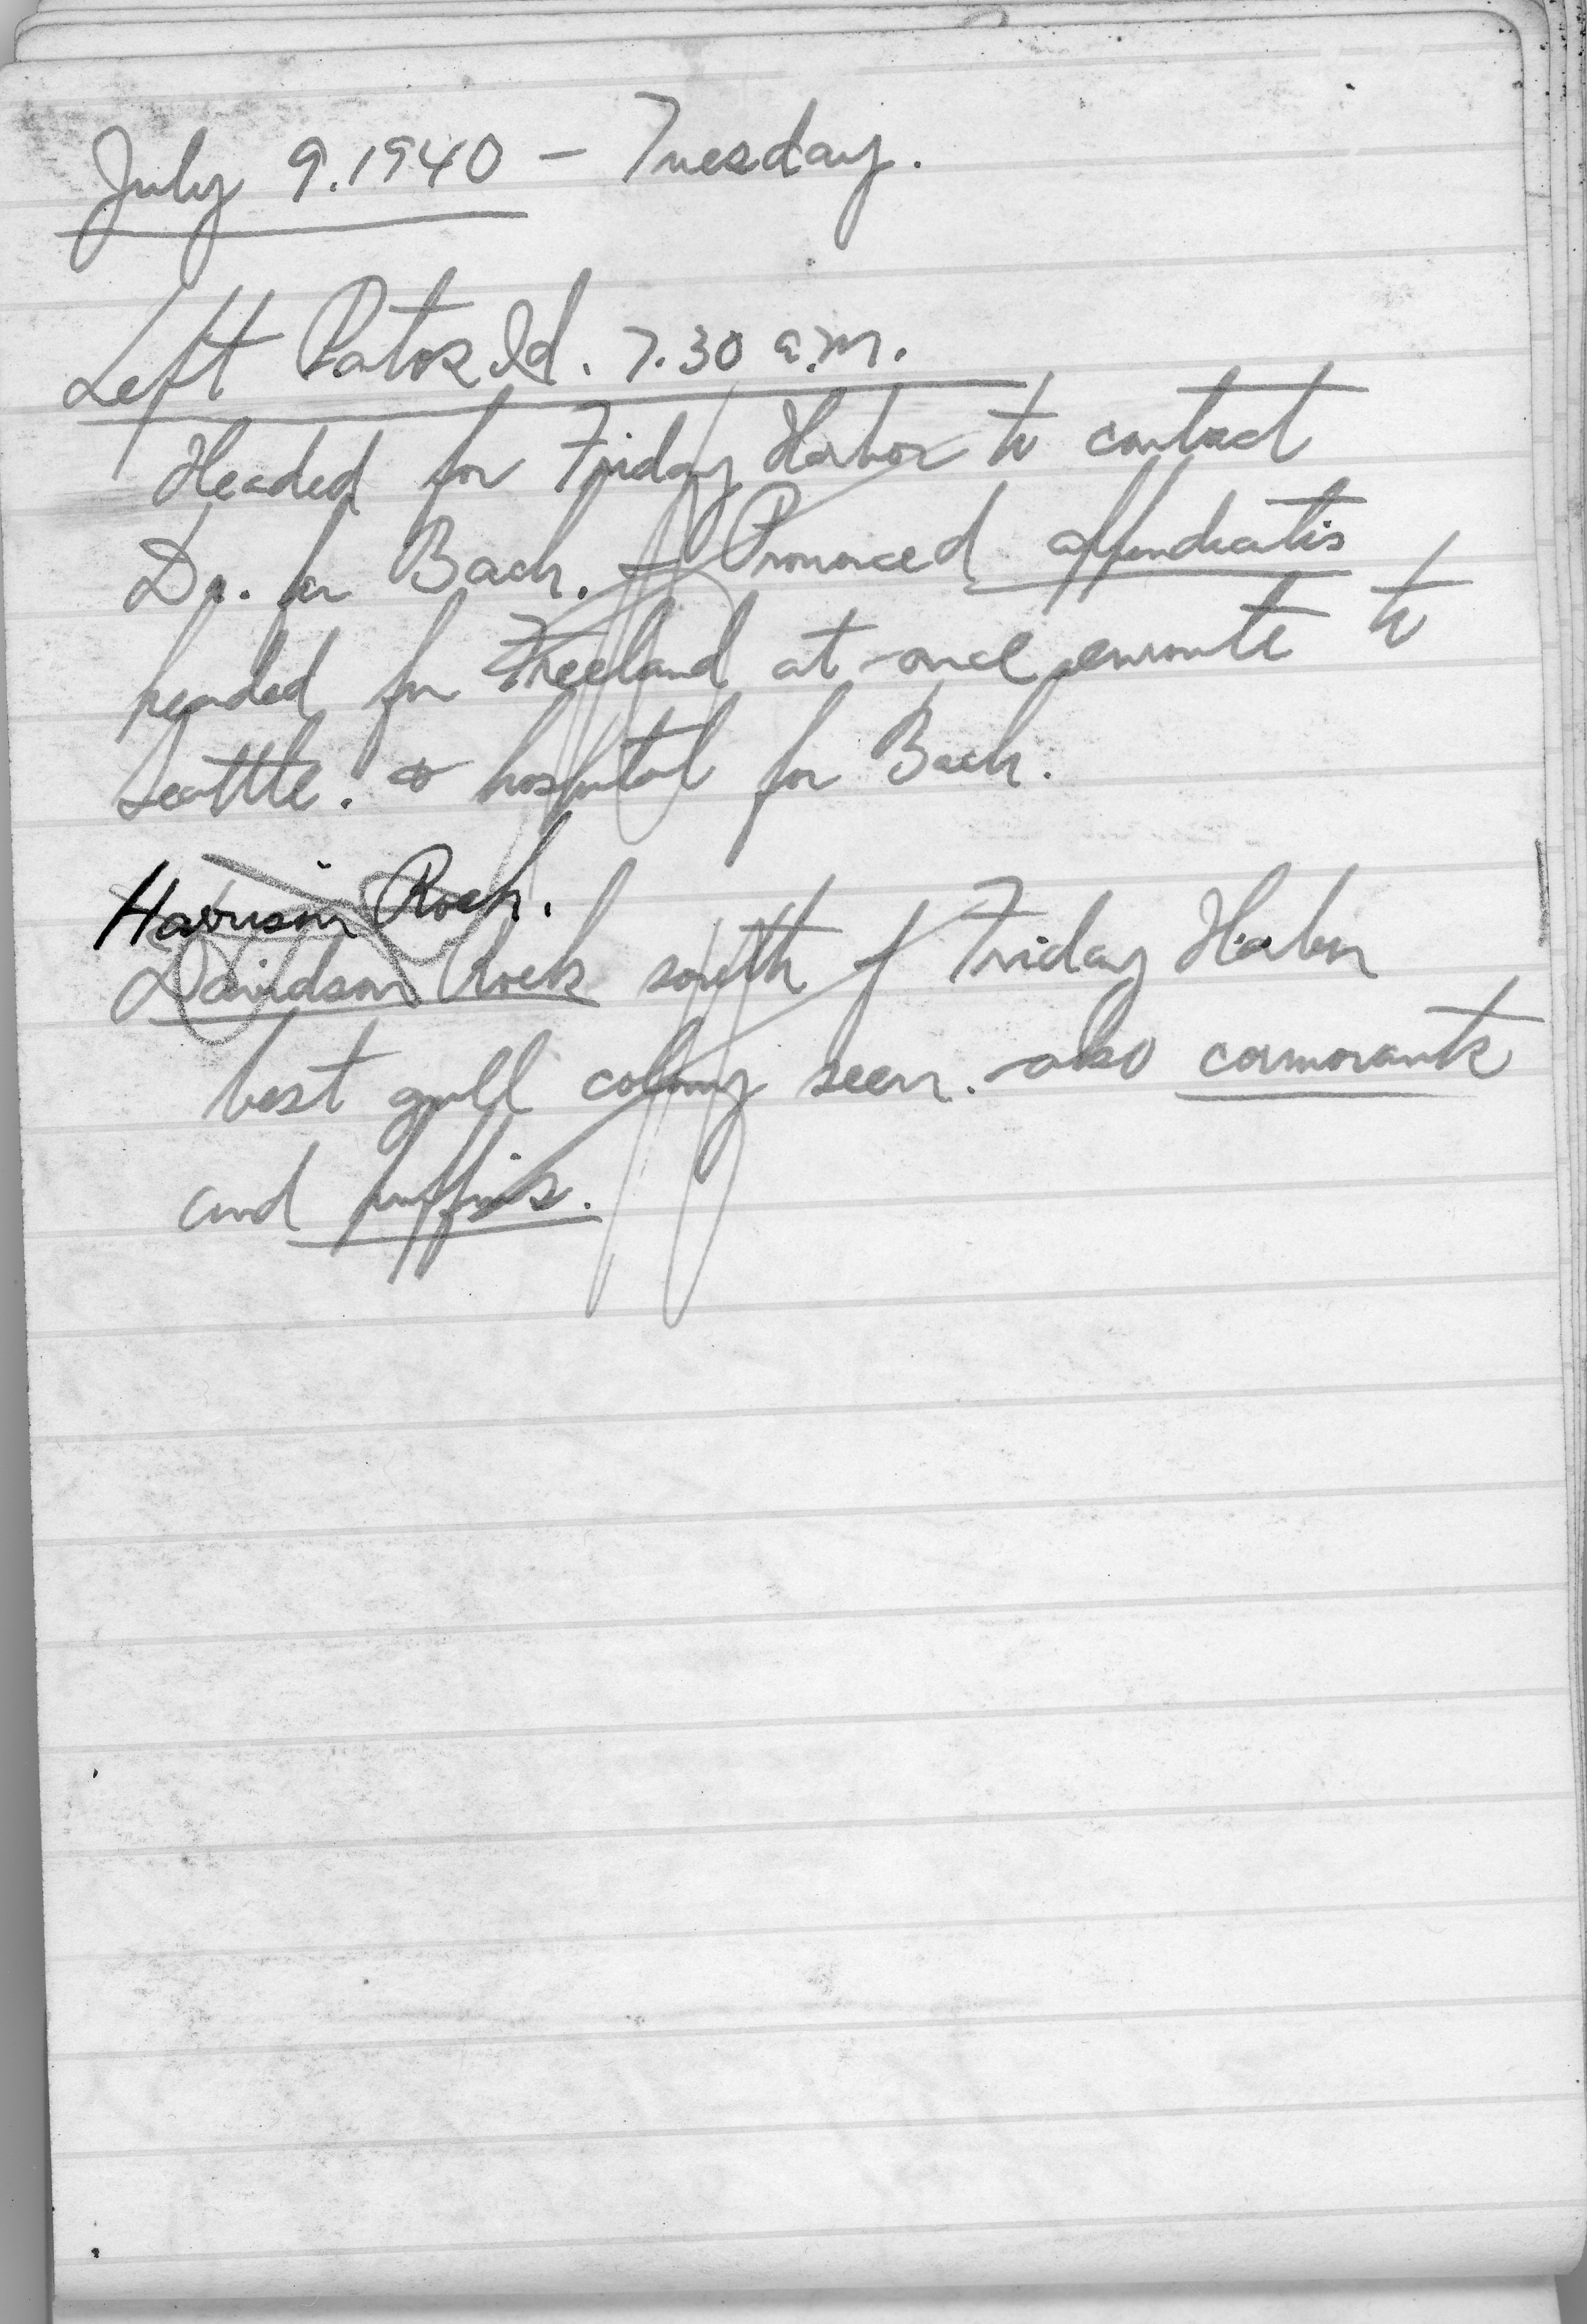 July 9. 1940 – Tuesday.
Left Patos Id. 7.30 a.m.
Headed for Friday Harbor to contact
Dr. for Bach. – Pronounced appendicatis
headed for Freeland at once enroute to
Seattle. & hospital for Bach.
Harrison Rock.
Davidson Rock south of Friday Harbor
best gull colony seen. also cormorants
and puffins.